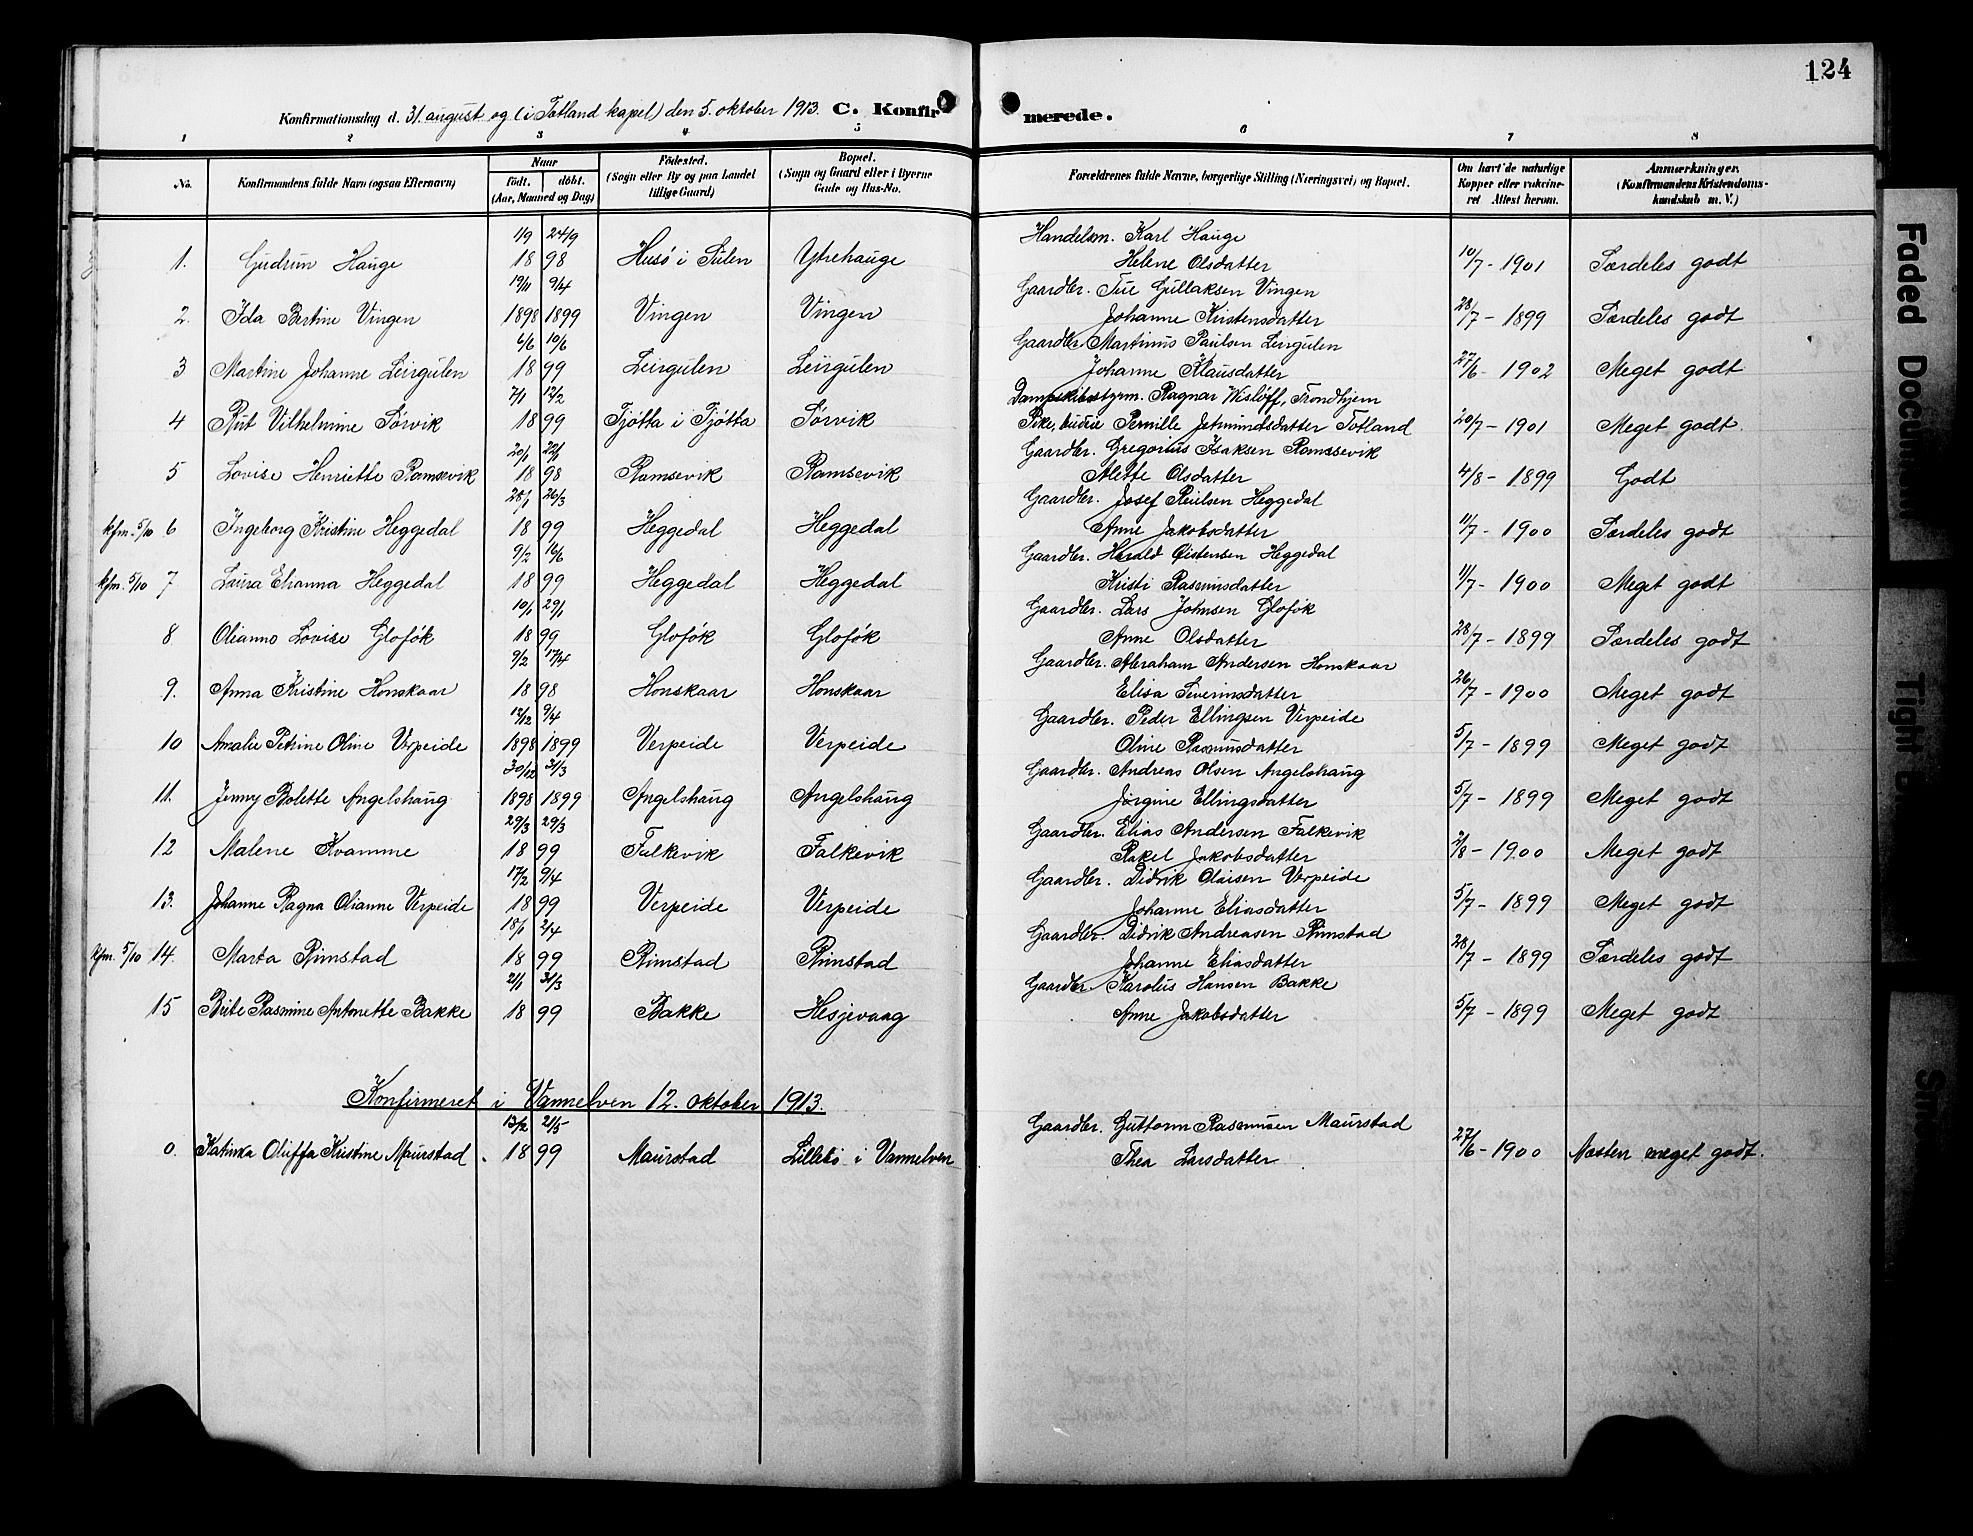 124
Konfirmationsdag d. 31. august og (i Totland kapel) den 5. oktober 1913. C. Konfirmerede.
1 2 3 4 5 6 7 8
No.
Konfirmandens fulde Navn (ogsaa Efternavn)
Naar
födt. döbt.
(Aar, Maaned og Dag)
Födested.
(Sogn eller By og paa Landet
tillige Gaard)
Bopæl.
(Sogn og Gaard eller i Byerne
Gade og Hus-No.
Forældrenes fulde Navne, borgerlige Stilling (Næringsvei) og Bopæl.
Om havt de naturlige
Kopper eller vakcineret
Attest herom.
Anmærkninger.
(Konfirmandens Kristendomskundskab
m. V.)
1/9 24/9 Handelsm. Karl Hauge
1. Gudrun Hauge 18 98 Husö i Sulen Ytrehauge Helene Olsdatter 10/7 - 1901 Særdeles godt
19/11 9/4 Gaardbr. Tue Gullaksen Vingen
2. Ida Bertine Vingen 1898 1899 Vingen Vingen Johanne Kristensdatter 28/7 - 1899 Særdeles godt
6/6 10/6 Gaardbr. Martinus Paulsen Leirgulen
3 Martine Johanne Leirgulen 18 99 Leirgulen Leirgulen Johanne Klausdatter 27/6 - 1902 Meget godt
7/1 12/2 Dampskibsstyrm. Ragnar Wisløff, Trondhjem
4 Rut Vilhelmine Sørvik 18 99 Tjøtta i Tjøtta Sørvik Pike, budeie Pernille Jetmundsdatter Totland 20/7 - 1901 Meget godt
20/1 22/1 Gaardbr. Gregorius Isaksen Ramsevik
5 Lovise Henriette Ramsevik 18 98 Ramsevik Ramsevik Alette Olsdatter 4/8 - 1899 Godt
28/1 26/3 Gaardbr. Josef Paulsen Heggedal
kfm. 5/10 6 Ingeborg Kristine Heggedal 18 99 Heggedal Heggedal Anne Jakobsdatter 11/7 - 1900 Særdeles godt
9/2 16/6 Gaardbr. Harald Øistensen Heggedal
kfm. 5/10 7 Laura Elianna Heggedal 18 99 Heggedal Heggedal Kristi Rasmusdatter 11/7 - 1900 Meget godt
10/1 29/1 Gaardbr. Lars Johnsen Gloføk
8 Olianna Lovise Gloføk 18 99 Gloføk Gloføk Anne Olsdatter 28/7 - 1899 Særdeles godt
9/2 17/4 Gaardbr. Abraham Andersen Honskaar
9. Anna Kristine Honskaar 18 98 Honskaar Honskaar Elisa Severinsdatter 26/7 - 1900 Meget godt
12/12 9/4 Gaardbr. Peder Ellingsen Verpeide
10 Amalie Petrine Oline Verpeide 1898 1899 Verpeide Verpeide Oline Rasmusdatter 5/7 - 1899 Meget godt
30/12 31/3 Gaardbr. Andreas Olsen Angelshaug
11. Jenny Bolette Angelshaug 1898 1899 Angelshaug Angelshaug Jørgine Ellingsdatter 5/7 - 1899 Meget godt
29/3 29/3 Gaardbr. Elias Andersen Falkevik
12 Malene Kvamme 18 99 Falkevik Falkevik Rakel Jakobsdatter 2/8 - 1900 Meget godt
17/2 9/4 Gaardbr. Didrik Olaisen Verpeide
13. Johanne Ragna Olianne Verpeide 18 99 Verpeide Verpeide Johanne Eliasdatter 5/7 - 1899 Meget godt
18/1 2/4 Gaardbr. Didrik Andreasen Rimstad
kfm. 5/10 14. Marta Rimstad 18 99 Rimstad Rimstad Johanne Eliasdatter 28/7 - 1899 Særdeles godt
21/1 31/3 Gaardbr. Karolus Hansen Bakke
15 Brite Rasmine Antonette Bakke 18 99 Bakke Hesjevaag Anne Jakobsdatter 5/7 - 1899 Meget godt
Konfirmeret i Vannelven 12. oktober 1913.
13/2 21/5 Gaardbr. Guttorm Rasmusen Maurstad
0. Katinka Oluffa Kristine Maurstad. 18 99 Maurstad Lillebø i Vannelven Thea Larsdatter 27/6 - 1900 Næsten meget godt.
Faded Document
Tight